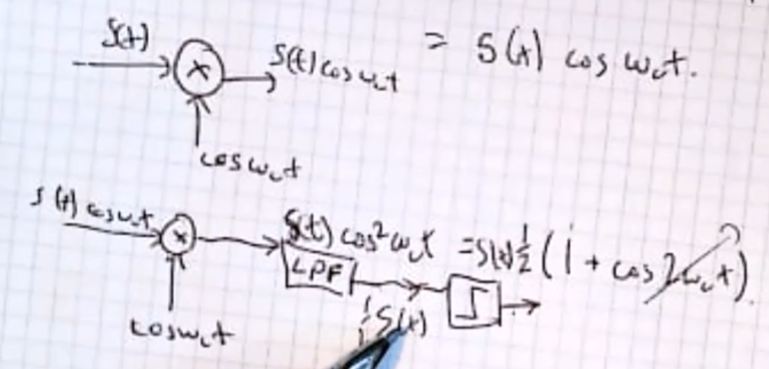 S(t)
S(t) cos ω_c t
= S(t) cos ω_c t.
cos ω_c t
S(t) cos ω_c t
S(t) cos² ω_c t = S(t) ½ (1 + cos 2ω_c t)
LPF
½ S(t)
cos ω_c t